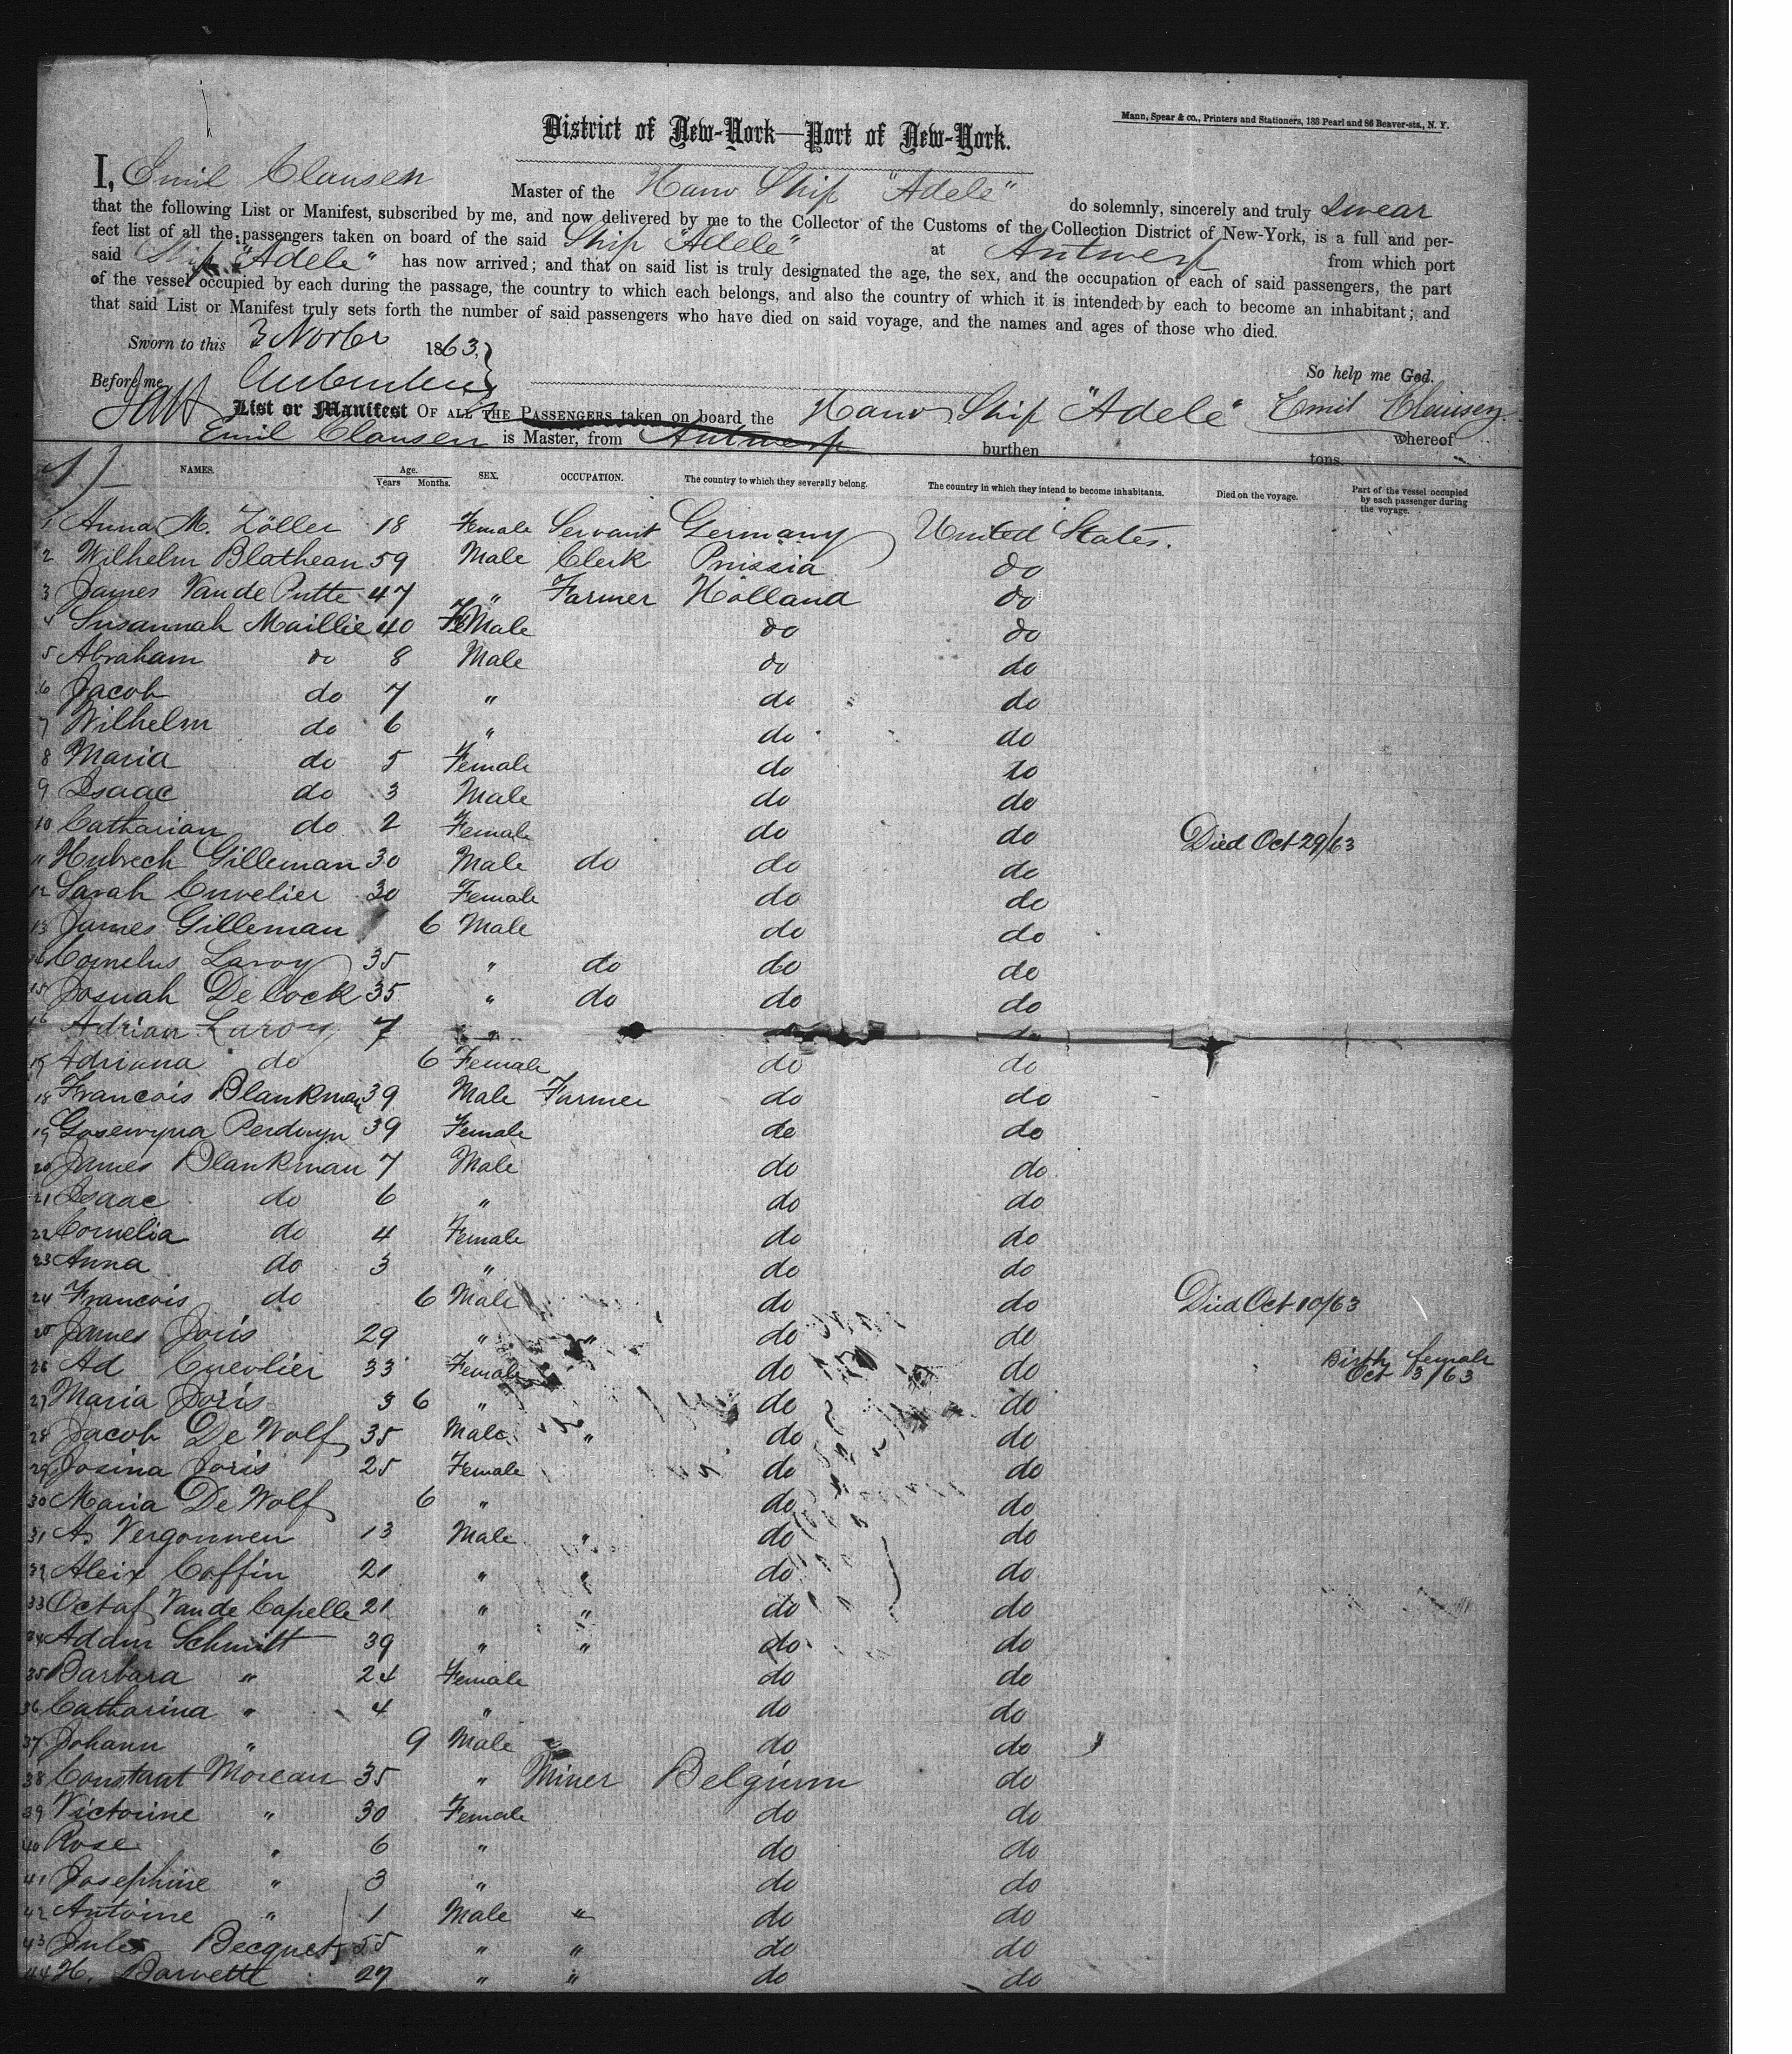 Mann, Spear & co., Printers and Stationers, 188 Pearl and 86 Beaver-sts., N. Y.
District of New-York—Port of New-York.
I, Emil Clausen Master of the Hanv Ship "Adele" do solemnly, sincerely and truly swear
that the following List or Manifest, subscribed by me, and now delivered by me to the Collector of the Customs of the Collection District of New-York, is a full and per-
fect list of all the passengers taken on board of the said Ship "Adele" at Antwerp from which port
said Ship "Adele" has now arrived; and that on said list is truly designated the age, the sex, and the occupation of each of said passengers, the part
of the vessel occupied by each during the passage, the country to which each belongs, and also the country of which it is intended by each to become an inhabitant; and
that said List or Manifest truly sets forth the number of said passengers who have died on said voyage, and the names and ages of those who died.
Sworn to this 3 Novbr 1863, So help me God.
Before me Emil Clausen
List or Manifest OF ALL THE PASSENGERS taken on board the Hanv Ship "Adele" whereof
Emil Clausen is Master, from Antwerp burthen tons.
NAMES. Age. Years Months. SEX. OCCUPATION. The country to which they severally belong. The country in which they intend to become inhabitants. Died on the voyage. Part of the vessel occupied by each passenger during the voyage.
1 Anna M. Zöller 18 Female Servant Germany United States.
2 Wilhelm Blathean 59 Male Clerk Prussia do
3 James Van de Putte 47 " Farmer Holland do
4 Susannah Maillie 40 FeMale do do
5 Abraham do 8 Male do do
6 Jacob do 7 " do do
7 Wilhelm do 6 " do do
8 Maria do 5 Female do do
9 Isaac do 3 Male do do
10 Catharian do 2 Female do do Died Oct 29/63
11 Hubrech Gilleman 30 Male do do do
12 Sarah Cuvelier 30 Female do do
13 James Gilleman 6 Male do do
14 Cornelus Laroy 35 " do do do
15 Josuah De Cock 35 " do do do
16 Adrian Laroy 7 " do do
17 Adriana do 6 Female do do
18 Francois Blankman 39 Male Farmer do do
19 Gosewyna Perduyn 39 Female do do
20 James Blankman 7 Male do do
21 Isaac do 6 " do do
22 Cornelia do 4 Female do do
23 Anna do 3 " do do
24 Francois do 6 Male do do Died Oct 10/63
25 James Joris 29 " " do do
26 Ad Cuevlier 33 Female do do Birth female Oct 3/63
27 Maria Joris 3 6 " do do
28 Jacob De Wolf 35 Male " do do
29 Josina Joris 25 Female do do
30 Maria De Wolf 6 " do do
31 A. Vergouwen 13 Male " do do
32 Aleix Coffin 21 " " do do
33 Octaf Van de Capelle 21 " " do do
34 Adam Schmitt 39 " " do do
35 Barbara " 24 Female do do
36 Catharina " 4 " do do
37 Johann " 9 Male do do
38 Constant Moreau 35 " Miner Belgium do
39 Victorine " 30 Female do do
40 Rose " 6 " do do
41 Josephine " 3 " do do
42 Antoine " 1 Male " do do
43 Jules Becquet 55 " " do do
44 H. Barvette 27 " " do do